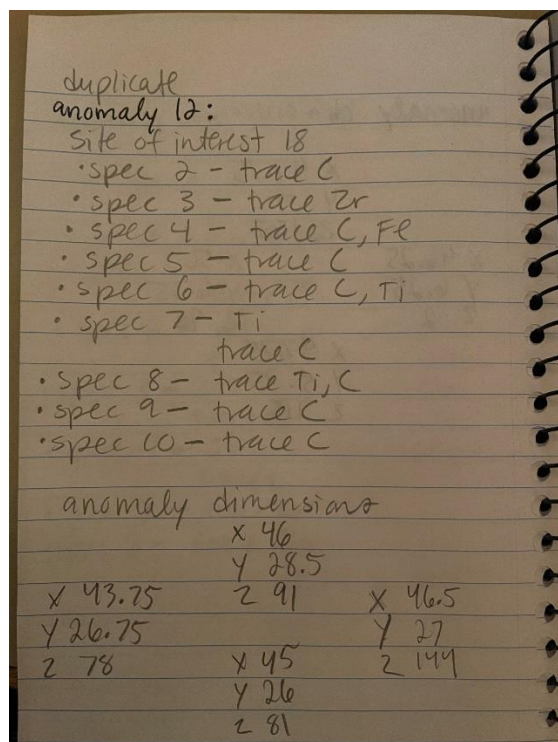 duplicate
anomaly 12:
site of interest 18
•spec 2 - trace C
•spec 3 - trace Zr
•spec 4 - trace C, Fe
•spec 5 - trace C
•spec 6 - trace C, Ti
•spec 7 - Ti
trace C
•spec 8 - trace Ti, C
•spec 9 - trace C
•spec 10 - trace C
anomaly dimensions
X 46
Y 28.5
Z 91
X 43.75
Y 26.75
Z 78
X 46.5
Y 27
Z 144
X 45
Y 26
Z 81